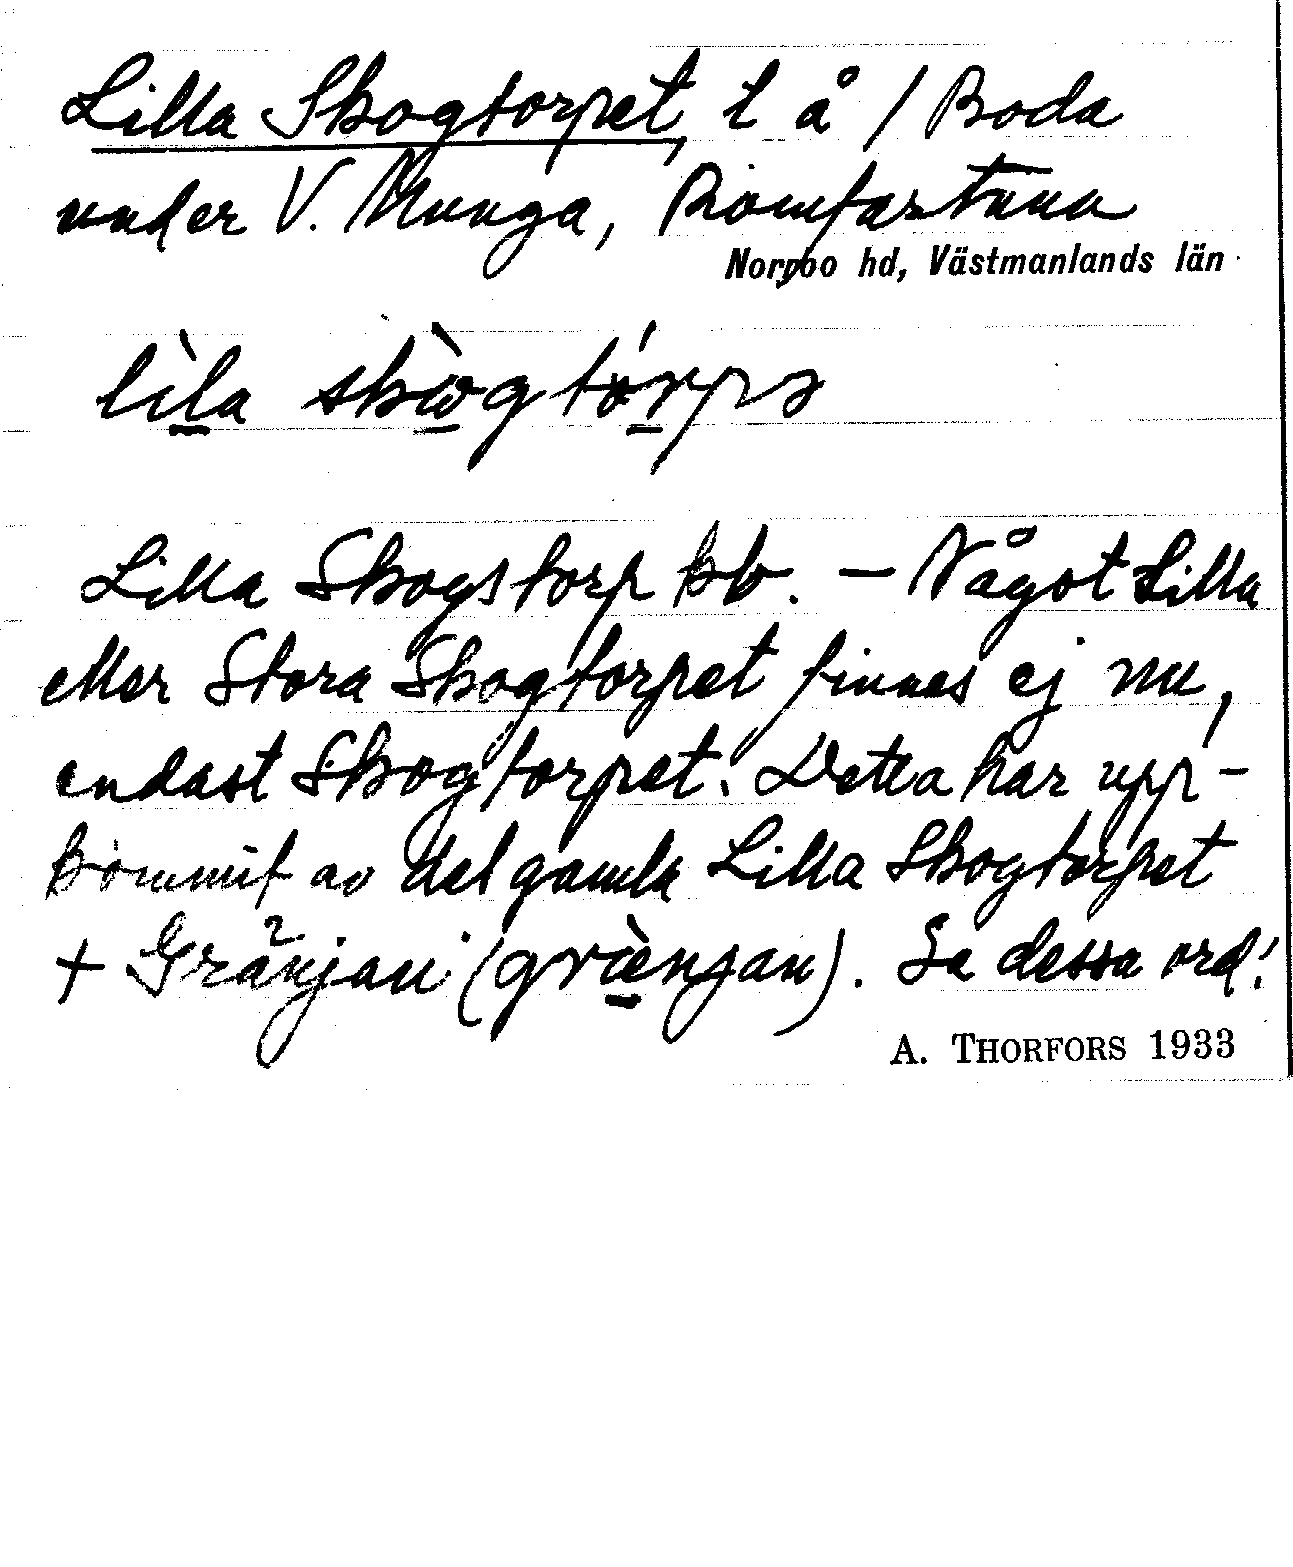 Lilla Skogtorpet, t å / Boda
under V. Munga, Romfartuna
Norrbo hd, Västmanlands län
lìla skògtórpə
Lilla Skogstorp kb. – Något Lilla
eller Stora Skogtorpet finnes ej nu,
endast Skogtorpet. Detta har upp-
kommit av det gamla Lilla Skogtorpet
+ Gränjan (grænjan). Se dessa ord!
A. THORFORS 1933